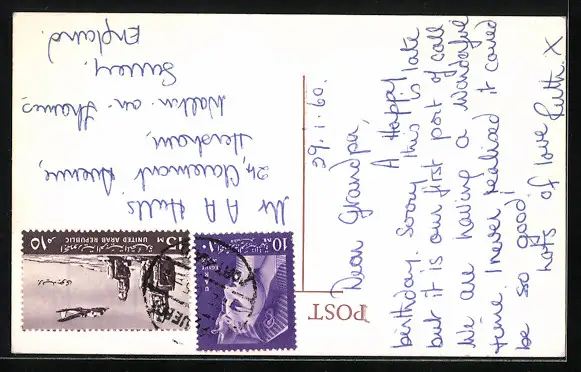 POST
29.1.60.
Dear Grandpa,
A Happy
birthday. Sorry this is late
but it is our first port of call
We are having a wonderful
time I never realised it could
be so good!
Lots of love Ruth. X
Mr A A Hills
24, Claremont Avenue,
Hersham,
Walton-on-Thames
Surrey,
England.
15 M
١٥
UNITED ARAB REPUBLIC
الجمهورية العربية المتحدة
10 M
١٠
U A R
EGYPT